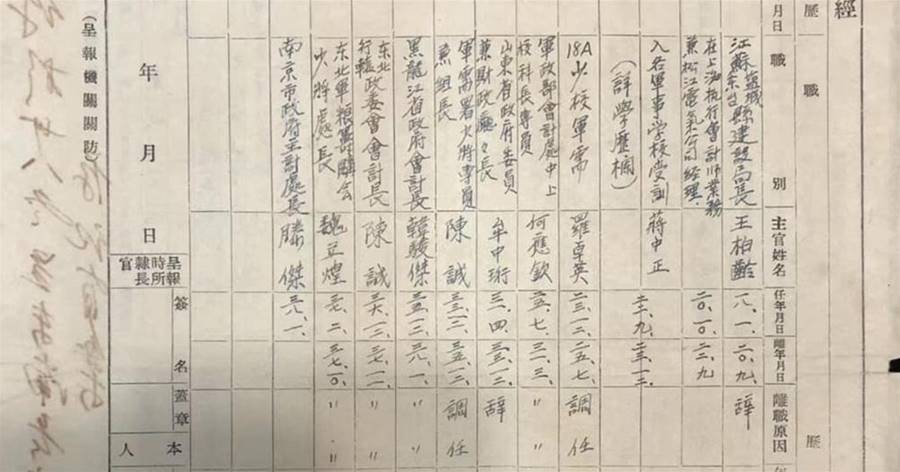 經
歷
月日
職
別
主官姓名
任年月日
離年月日
離職原因
江蘇鹽城
東台縣建設局長
王柏齡
一八、一、
二〇、九、
辞
在上海执行會計师業務
兼松江電气公司經理
二〇、一〇、
二二、九
入各軍事学校受訓
(詳學歷欄)
蔣中正
二二、九、
二三、一二、
18A少校軍需
羅卓英
二三、一二、
二五、七、
調任
軍政部會計處中上
校科長專員
何應欽
二五、七、
三一、三、
〃〃
山東省政府委員
兼財政廳々長
牟中珩
三一、四、
三三、一二、
辞
軍需署少將專員
兼組長
陳誠
三三、一二、
三五、一二、
調任
黑龍江省政府會計長
韓駿傑
三五、一二、
三六、一、
〃〃
东北政委會會計長
行轅
陳誠
三六、一二、
三七、一一、
〃〃
东北軍粮籌購会
少將處長
魏正煌
三七、二、
三七、一〇、
〃〃
南京市政府主計處長
滕傑
三八、一、
年月日
呈報時所隸長官
簽名蓋章
本人
(呈報機關關防)